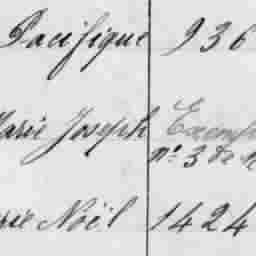 Pacifique 936
Marie Joseph
nº 3 de
Noël 1424